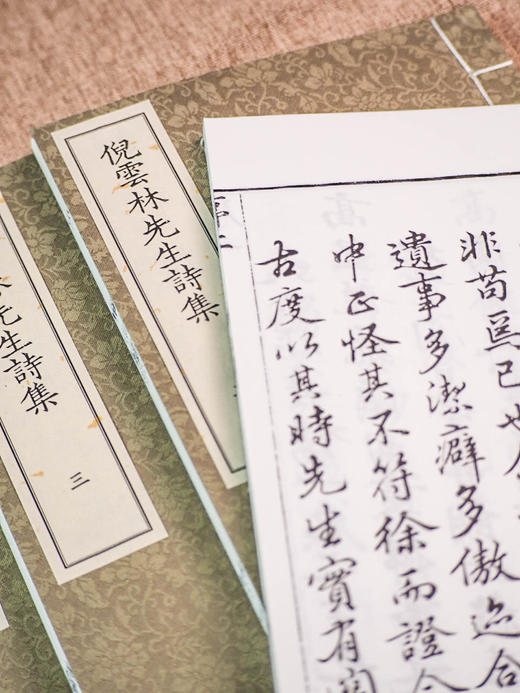 倪雲林先生詩集
先生詩集
三
非苟爲已也
遺事多潔癖多傲迹合
中正怪其不符徐而證
古度以其時先生實有